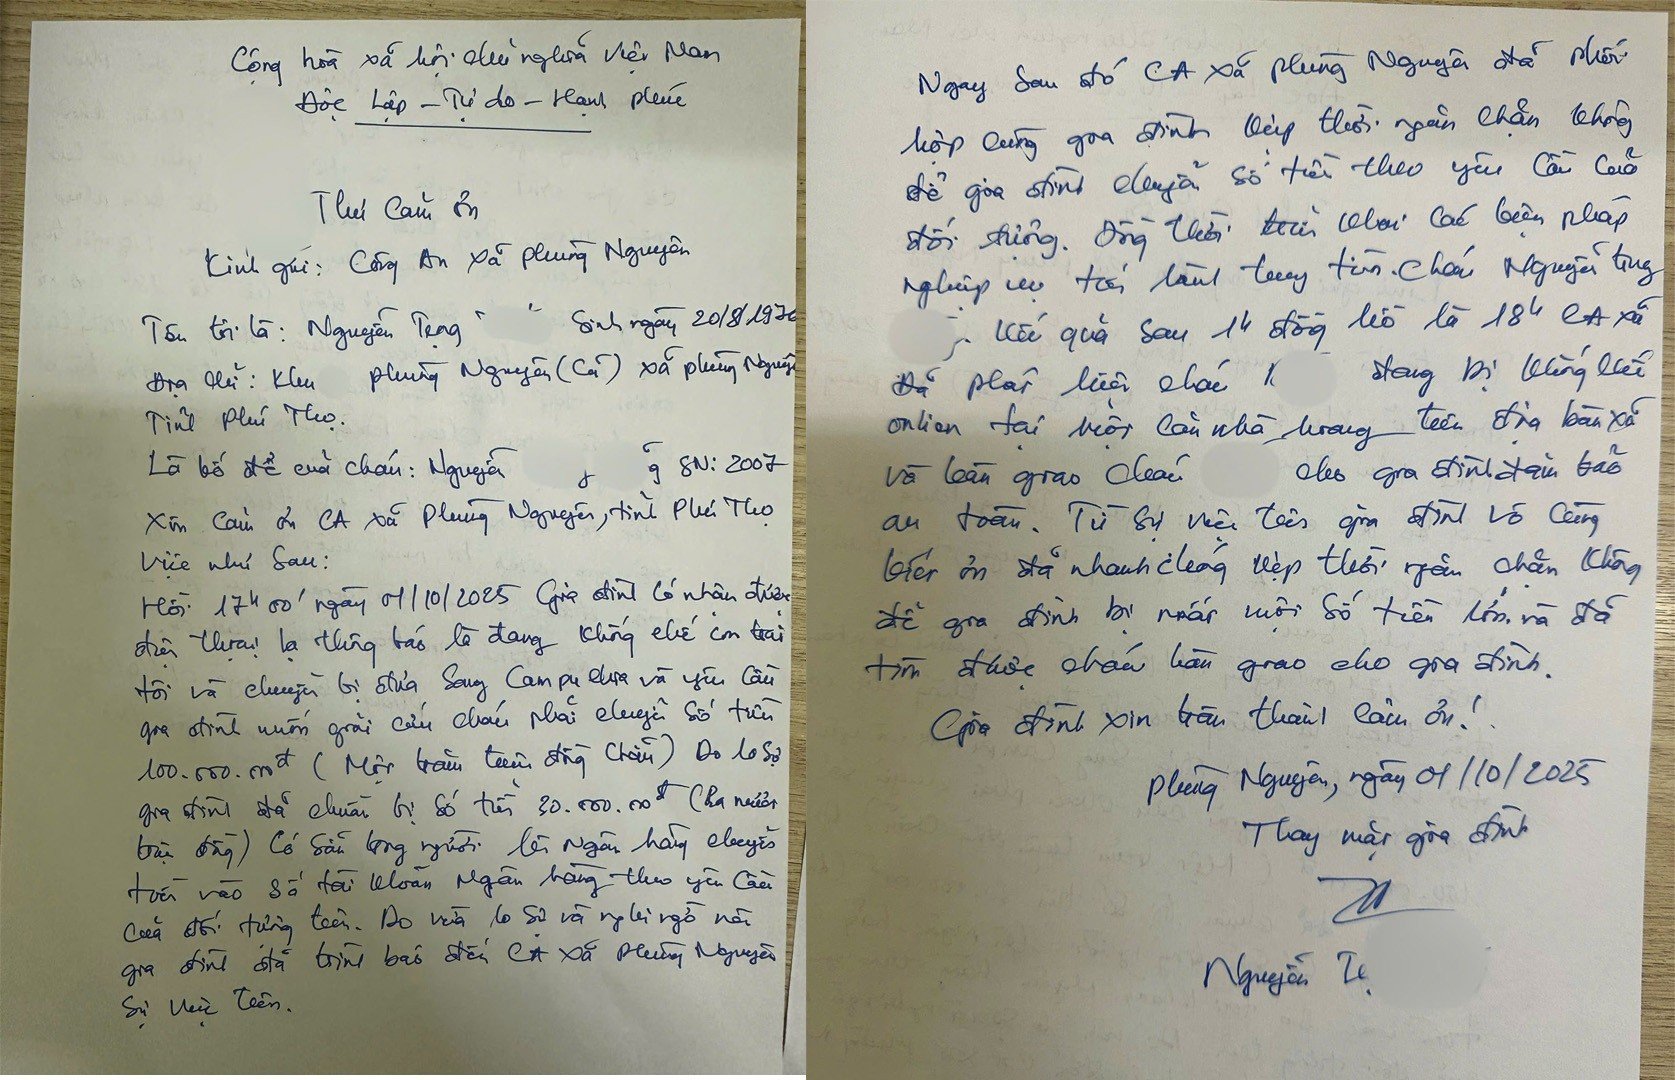 Cộng hoà xã hội chủ nghĩa Việt Nam
Độc Lập - Tự do - Hạnh phúc
Thư Cảm ơn
Kính gửi: Công An xã Phùng Nguyên
Tên tôi là: Nguyễn Trọng Sinh ngày 20/8/1976
Địa chỉ: Khu Phùng Nguyên (Cũ) xã Phùng Nguyên
Tỉnh Phú Thọ.
Là bố đẻ của cháu: Nguyễn g SN: 2007
Xin cảm ơn CA xã Phùng Nguyên, tỉnh Phú Thọ
việc như sau:
Hồi 17h00' ngày 01/10/2025 Gia đình có nhận được
điện thoại lạ thông báo là đang khống chế con trai
tôi và chuẩn bị đưa sang Campuchia và yêu cầu
gia đình muốn giải cứu cháu phải chuyển số tiền
100.000.000đ (Một trăm triệu đồng chẵn) Do lo sợ
gia đình đã chuẩn bị số tiền 30.000.000đ (Ba mươi
triệu đồng) Có sẵn trong người lên Ngân hàng chuyển
tiền vào số tài khoản Ngân hàng theo yêu cầu
của đối tượng trên. Do vừa lo sợ và nghi ngờ nên
gia đình đã trình báo đến CA xã Phùng Nguyên
sự việc trên.
Ngay sau đó CA xã Phùng Nguyên đã phối
hợp cùng gia đình kịp thời ngăn chặn không
để gia đình chuyển số tiền theo yêu cầu của
đối tượng. Đồng thời triển khai các biện pháp
nghiệp vụ tiến hành truy tìm cháu Nguyễn Trọng
. Kết quả sau 1h đồng hồ là 18h CA xã
Đã phát hiện cháu đang bị khống chế
onlien tại một căn nhà hoang trên địa bàn xã
và bàn giao cháu cho gia đình đảm bảo
an toàn. Từ sự việc trên gia đình vô cùng
biết ơn đã nhanh chóng kịp thời ngăn chặn không
để gia đình bị mất một số tiền lớn và đã
tìm được cháu bàn giao cho gia đình.
Gia đình xin trân thành cảm ơn!
Phùng Nguyên, ngày 01/10/2025
Thay mặt gia đình
Nguyễn Tr